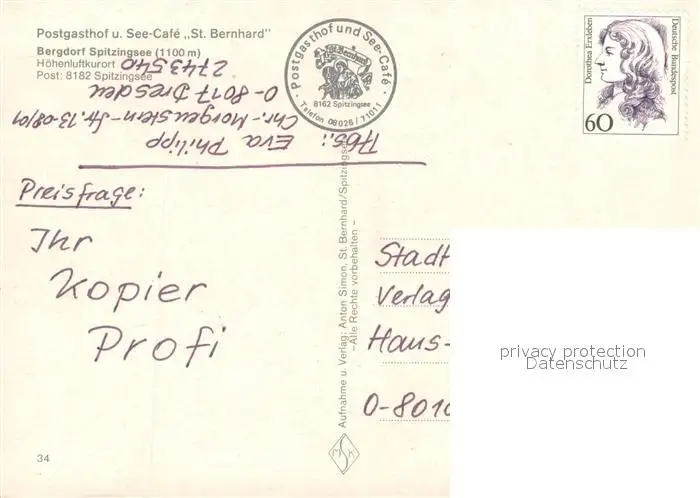 Postgasthof u. See-Café „St. Bernhard"
Bergdorf Spitzingsee (1100 m)
Höhenluftkurort
Post: 8182 Spitzingsee
Abs.: Eva Philipp
Chr.-Morgenstern-Str. 13-08/01
O-8017 Dresden
2743540
Postgasthof und See-Café
St. Bernhard
8162 Spitzingsee
Telefon 08026 / 71011
Dorothea Erxleben
Deutsche Bundespost
60
Preisfrage:
Ihr
Kopier
Profi
Aufnahme u. Verlag: Anton Simon, St. Bernhard/Spitzingsee
–Alle Rechte vorbehalten –
Stadt
Verlag
Hans-
O-8010
privacy protection
Datenschutz
34